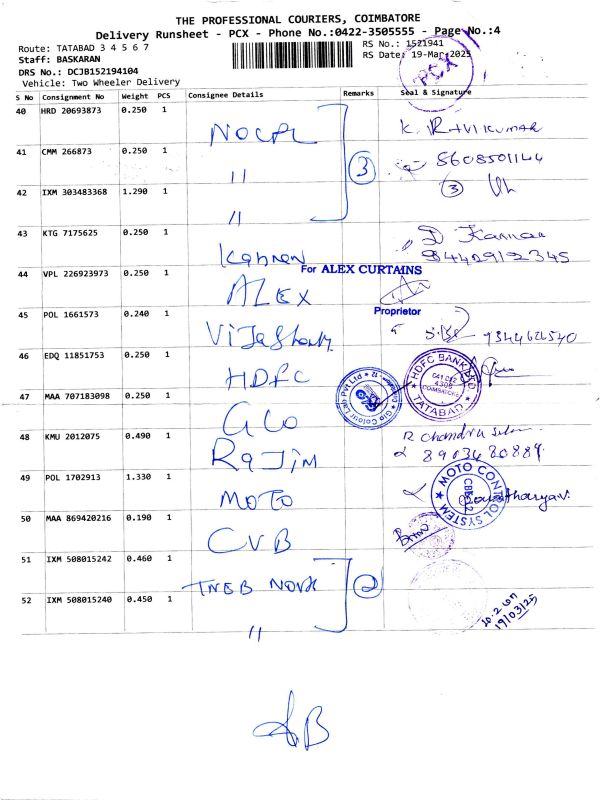 THE PROFESSIONAL COURIERS, COIMBATORE
Delivery Runsheet - PCX - Phone No.:0422-3505555 - Page No.:4
Route: TATABAD 3 4 5 6 7
RS No.: 1521941
Staff: BASKARAN
RS Date: 19-Mar-2025
DRS No.: DCJB152194104
Vehicle: Two Wheeler Delivery
PCX
S No Consignment No Weight PCS Consignee Details Remarks Seal & Signature
40 HRD 20693873 0.250 1 NOCPL K. RAVIKUMAR
41 CMM 266873 0.250 1 " 3 5608501144
42 IXM 303483368 1.290 1 " 3
43 KTG 7175625 0.250 1 Kannan D Kannan
For ALEX CURTAINS
44 VPL 226923973 0.250 1 ALEX
Proprietor
45 POL 1661573 0.240 1
46 EDQ 11851753 0.250 1 HDFC
HDFC BANK LTD
TATABAD
47 MAA 707183098 0.250 1
48 KMU 2012075 0.490 1 R Chandra
8903680889
49 POL 1702913 1.330 1 MOTO
MOTO CONTROL SYSTEM
50 MAA 869420216 0.190 1 CVB
51 IXM 508015242 0.460 1 TNEB 2
52 IXM 508015240 0.450 1 "
19/03/25